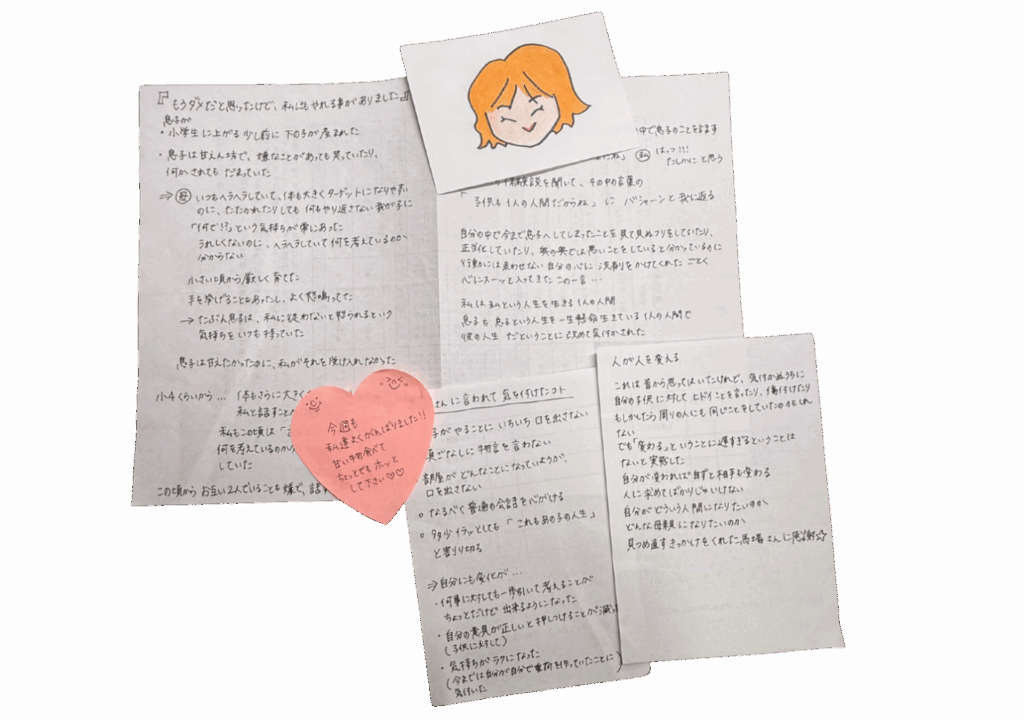 『もうダメだと思ったけど、私にもやれる事がありました』
息子が
・小学生に上がる少し前に下の子が産まれた
・息子は甘えん坊で、嫌なことがあっても笑っていたり、
何かされてもだまっていた
⇒ 母 いつもヘラヘラしていて、体も大きくターゲットになりやすい
のに、たたかれたりしても何もやり返さない我が子に
「何で!?」という気持ちが常にあった
うれしくないのに、ヘラヘラしていて何を考えているのか
分からない
小さい頃から厳しく育てた
手を挙げることもあったし、よく怒鳴ってた
→ たぶん息子は、私に従わないと怒られるという
気持ちをいつも持っていた
息子は甘えたかったのに、私がそれを受け入れなかった
小4くらいから… 体もさらに大きく
私と話すこと
私もこの頃は「
何を考えているのか
していた
この頃からお互い2人でいることも嫌で、話す
中で息子のことを話す
たね」 私 はっ!!!
たしかにと思う
体験談を聞いて、その中の言葉の
「子供も1人の人間だからね」にバシャーンと我に返る
自分の中で今まで息子へしてしまったことを見て見ぬフリをしていたり、
正当化していたり、奥の奥では悪いことをしていると分かっているのに
行動には表わせない自分の心に
心にスーッと入ってきたこの一言…
私は私という人生を生きる1人の人間
息子も息子という人生を一生懸命生きている1人の人間で
彼の人生だということに改めて気付かされた
今週も
私達よくがんばりました!!
甘い物食べて
ちょっとでもホッと
して下さい♡♡
さんに言われて気を付けたコト
子がやることにいちいち口を出さない
頭ごなしに物言を言わない
部屋がどんなことになっていようが、
口を出さない
○ なるべく普通の会話を心がける
○ 多少イラッとしても「これもあの子の人生」
と割り切る
⇒自分にも変化が…
・何事に対しても一歩引いて考えることが
ちょっとだけど出来るようになった
・自分の意見が正しいと押しつけることが減っ
(子供に対して)
・気持ちがラクになった
(今までは自分が自分で重荷を作っていたことに)
気付いた
人が人を変える
これは昔から思ってはいたけれど、気付かぬうちに
自分の子供に対してヒドイことを言ったり、傷付けたり
もしかしたら周りの人にも同じことをしていたのかもしれ
ない
でも「変わる」ということに遅すぎるということは
ないと実感した
自分が変われば自ずと相手も変わる
人に求めてばかりじゃいけない
自分がどういう人間になりたいのか
どんな母親になりたいのか
見つめ直すきっかけをくれた馬場さんに感謝☆